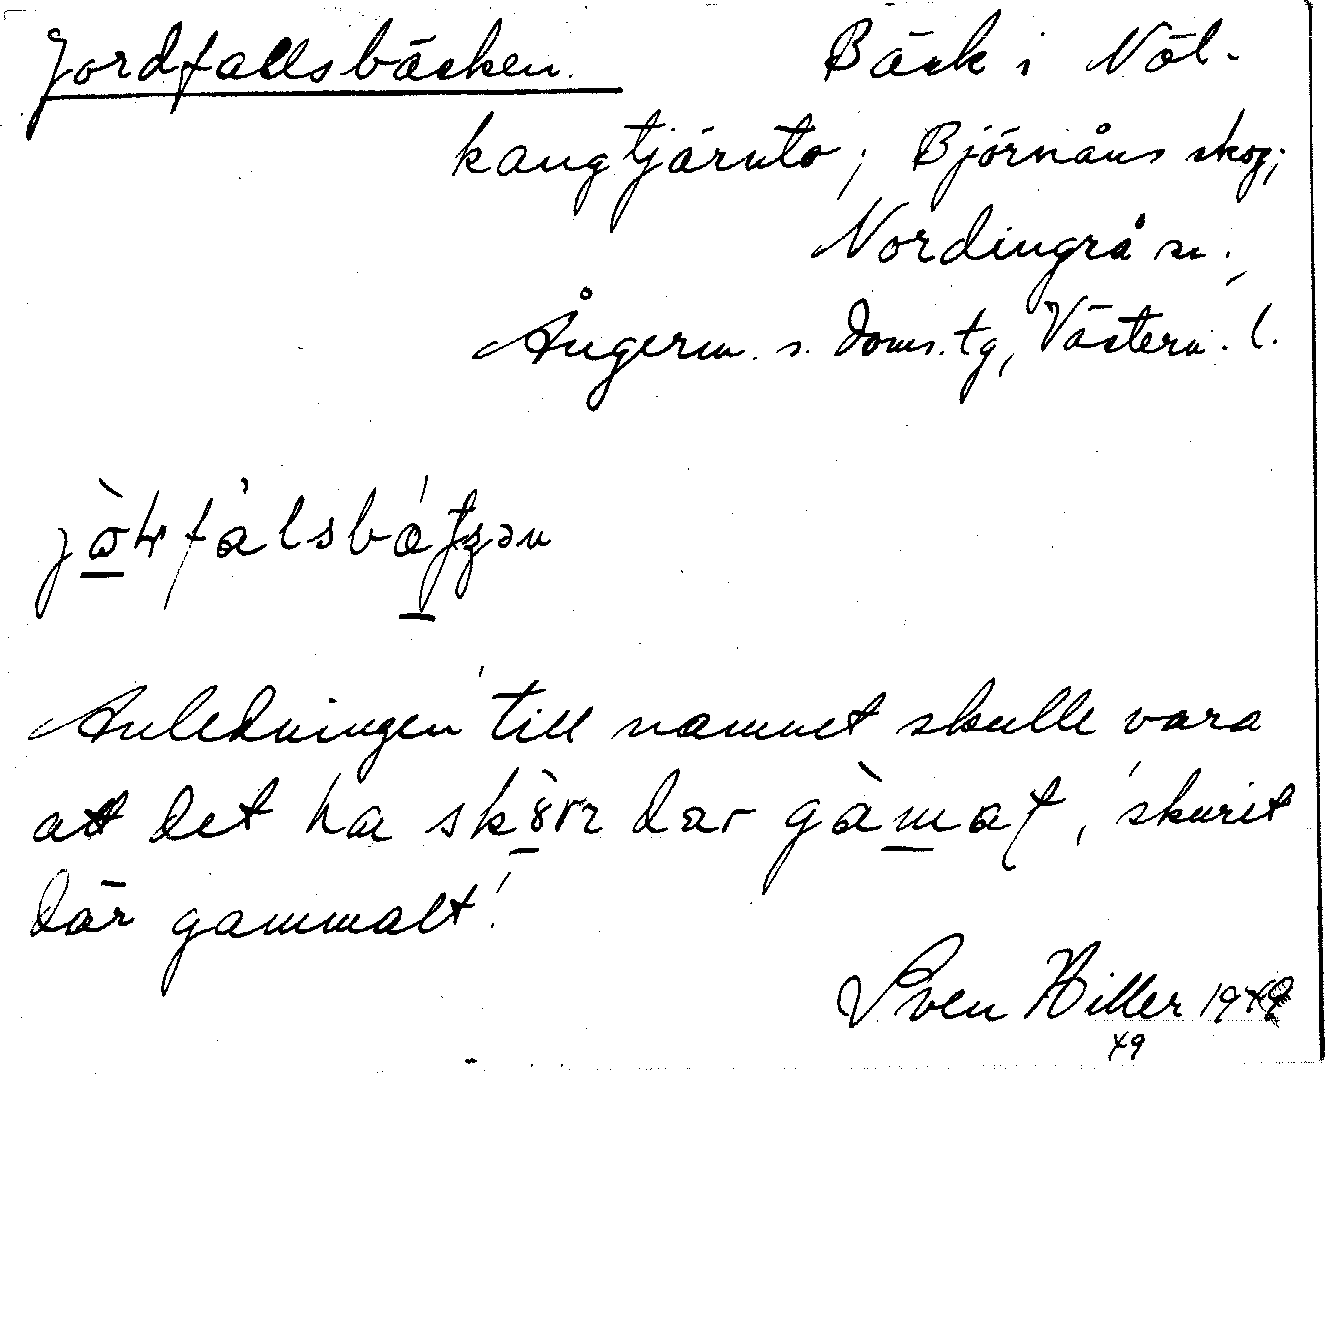 Jordfallsbäcken. Bäck i Nöl-
kangtjärnto; Björnåns skog;
Nordingrå sn.,
Ångerm. s. doms. tg, Västern. l.
Anledningen till namnet skulle vara
att det ha skörr dar gàmat, 'skurit
där gammalt'.
Sven Hiller 19
49